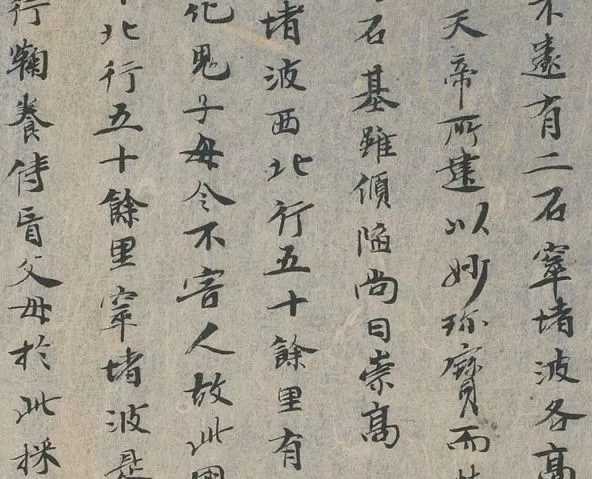 不遠有二石窣堵波各高
天帝所建以妙珎寶而
石基雖傾陥尚曰崇高
堵波西北行五十餘里有
化鬼子母令不害人故此國
北行五十餘里窣堵波是
行鞠養侍盲父母於此採